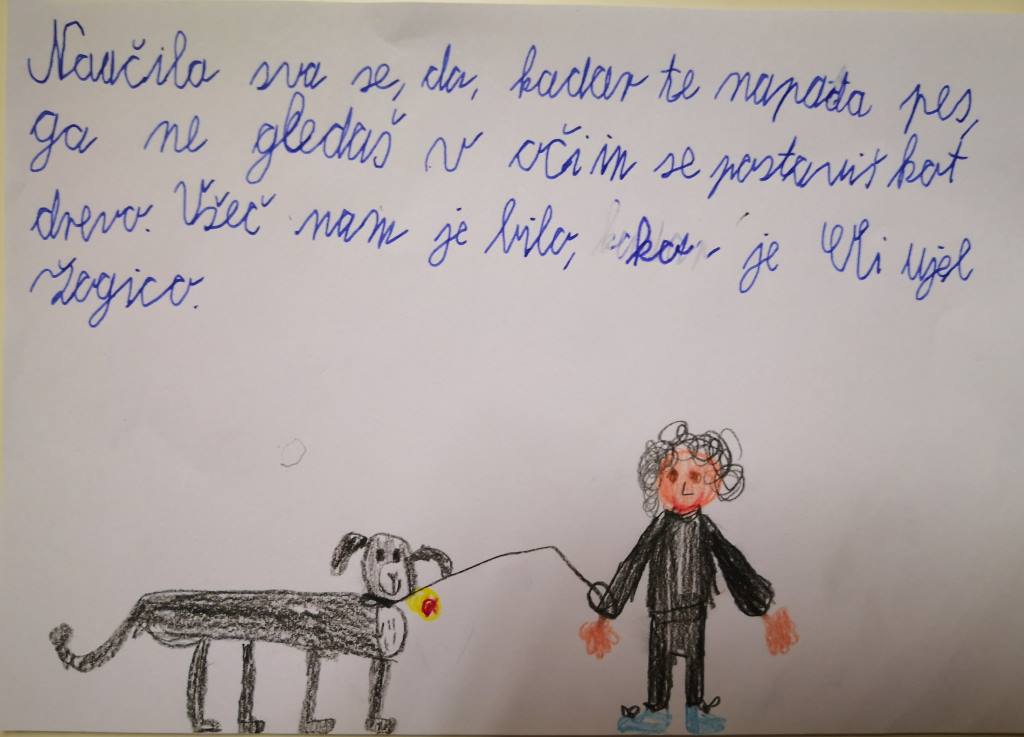 Naučila sva se, da, kadar te napada pes,
ga ne gledaš v oči in se postaviš kot
drevo. Všeč nam je bilo, ko je Uli ujel
žogico.